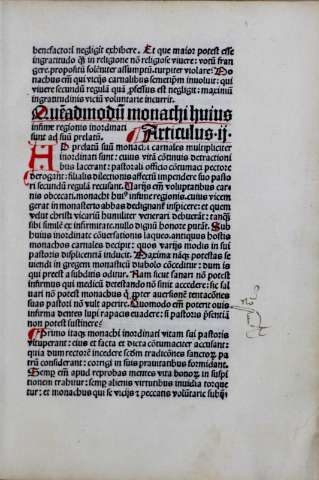 benefactori negligit exhibere. Et que maior potest esse
ingratitudo q̃ in religione nõ religiose vivere: votũ fran
gere. propositũ solenniter assumptũ turpiter violare. Mo
nachus em̃ qui vicijs carnalibus semetipm̃ involuit: qui
vivere secundũ regulã quã professus est negligit: maximũ
ingratitudinis viciũ voluntarie incurrit.
Quẽadmodũ monachi huius
infime regionis inordinati
sunt ad suũ prelatũ. Articulus.ij.
AD prelatũ suũ monachi carnales multipliciter
inordinati sunt: cuius vitã cõtinuis detractioni
bus lacerant: pastorali officio cõtumaci pectore
derogant: filialis dilectionis affectũ impendere suo pasto
ri secundũ regulã recusant. Varijs em̃ voluptatibus car-
nis obcecati. monachi huiꝰ infime regionis. cuius vicem
gerat in monasterio abbas dedignant᷑ inspicere: et quem
velut christi vicariũ humiliter venerari debuerãt: tanq̃
sibi similẽ et infirmitate. nullo dignũ honore putãt. Sub
huius inordinate cõversationis laqueo. antiquus hostis
monachos carnales decipit: quos varijs modis in sui
pastoris displicentiã inducit. Maxima nãqꝫ potestas se
viendi in gregem monasticũ diabolo cõceditur: dum is
qui preest a subditis oditur. Nam sicut sanari nõ potest
infirmus qui medicũ detestando nõ sinit accedere: sic sal
vari nõ potest monachus q̃ ꝓpter aversionẽ tentacõnes
suas pastori nõ vult aperire. Quomodo em̃ potest ovis
infirma dentes lupi rapacis evadere: si pastoris p̃sentiã
non potest sustinere?
Primo itaqꝫ monachi inordinati vitam sui pastoris
vituperant: eius et facta et dicta cõtumaciter accusant:
quia dum rectorẽ incedere scd̃m tradicõnes sanctoꝝ pa
trũ considerant: corrigi in suis pravitatibus formidant.
Semꝑ em̃ apud reprobas mentes vita bonoꝝ in suspi
tionem trahitur: semꝑ alienis virtutibus invidia torque
tur: et monachus qui se vicijs et peccatis voluntarie subij-